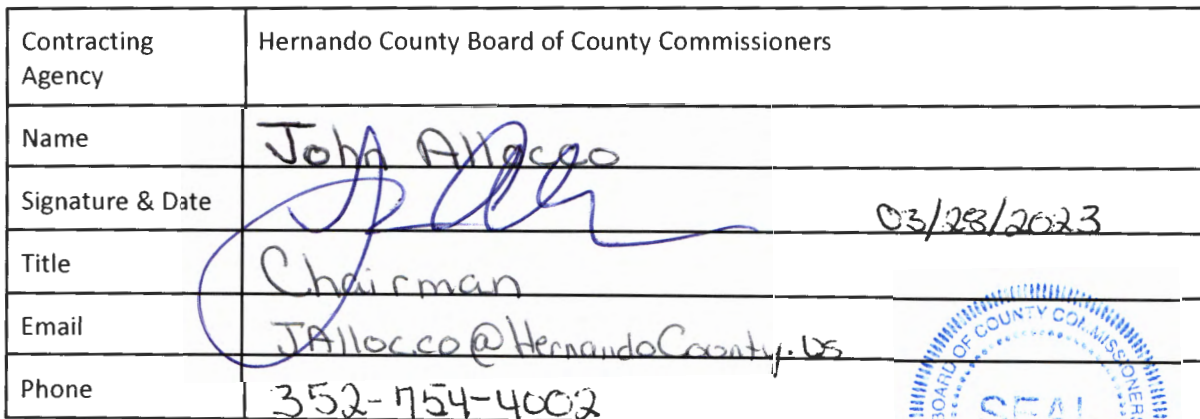 Contracting Agency
Hernando County Board of County Commissioners
Name
John Allocco
Signature & Date
03/28/2023
Title
Chairman
Email
JAllocco@HernandoCounty.us
Phone
352-754-4002
BOARD OF COUNTY COMMISSIONERS
SEAL